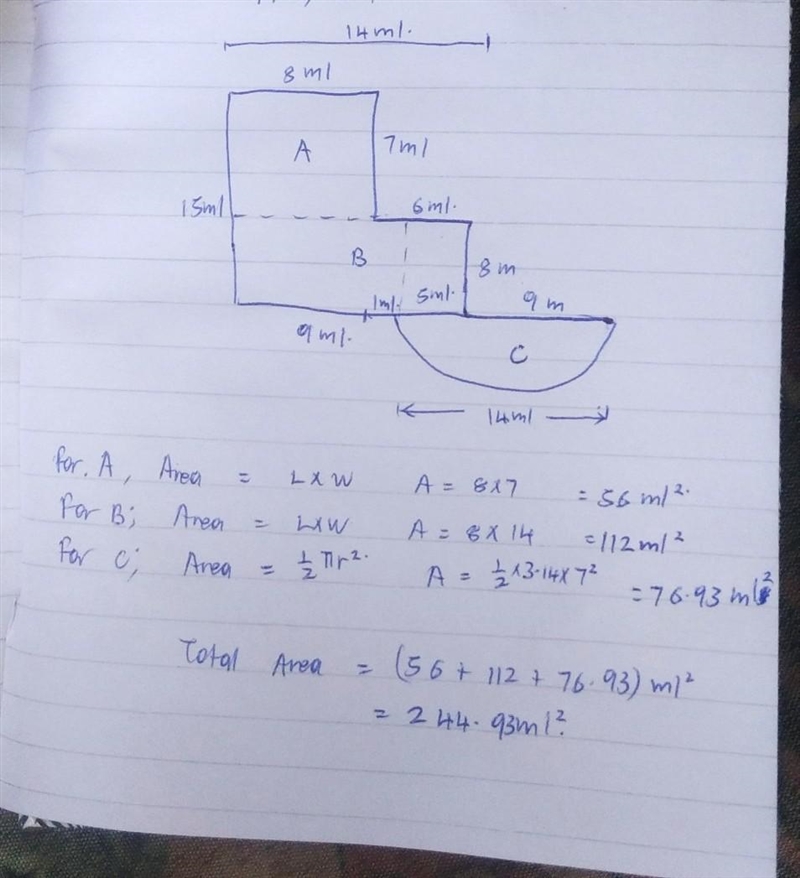 14ml.
8ml
A
7ml
15ml
6ml.
B
8m
1ml.
5ml.
9m
9ml.
C
14ml
For. A, Area = L×W A = 8×7 = 56 ml².
For B; Area = L×W A = 8 × 14 = 112ml²
For C; Area = ½πr². A = ½×3.14×7² = 76.93 ml²
Total Area = (56 + 112 + 76.93) ml²
= 244.93ml².